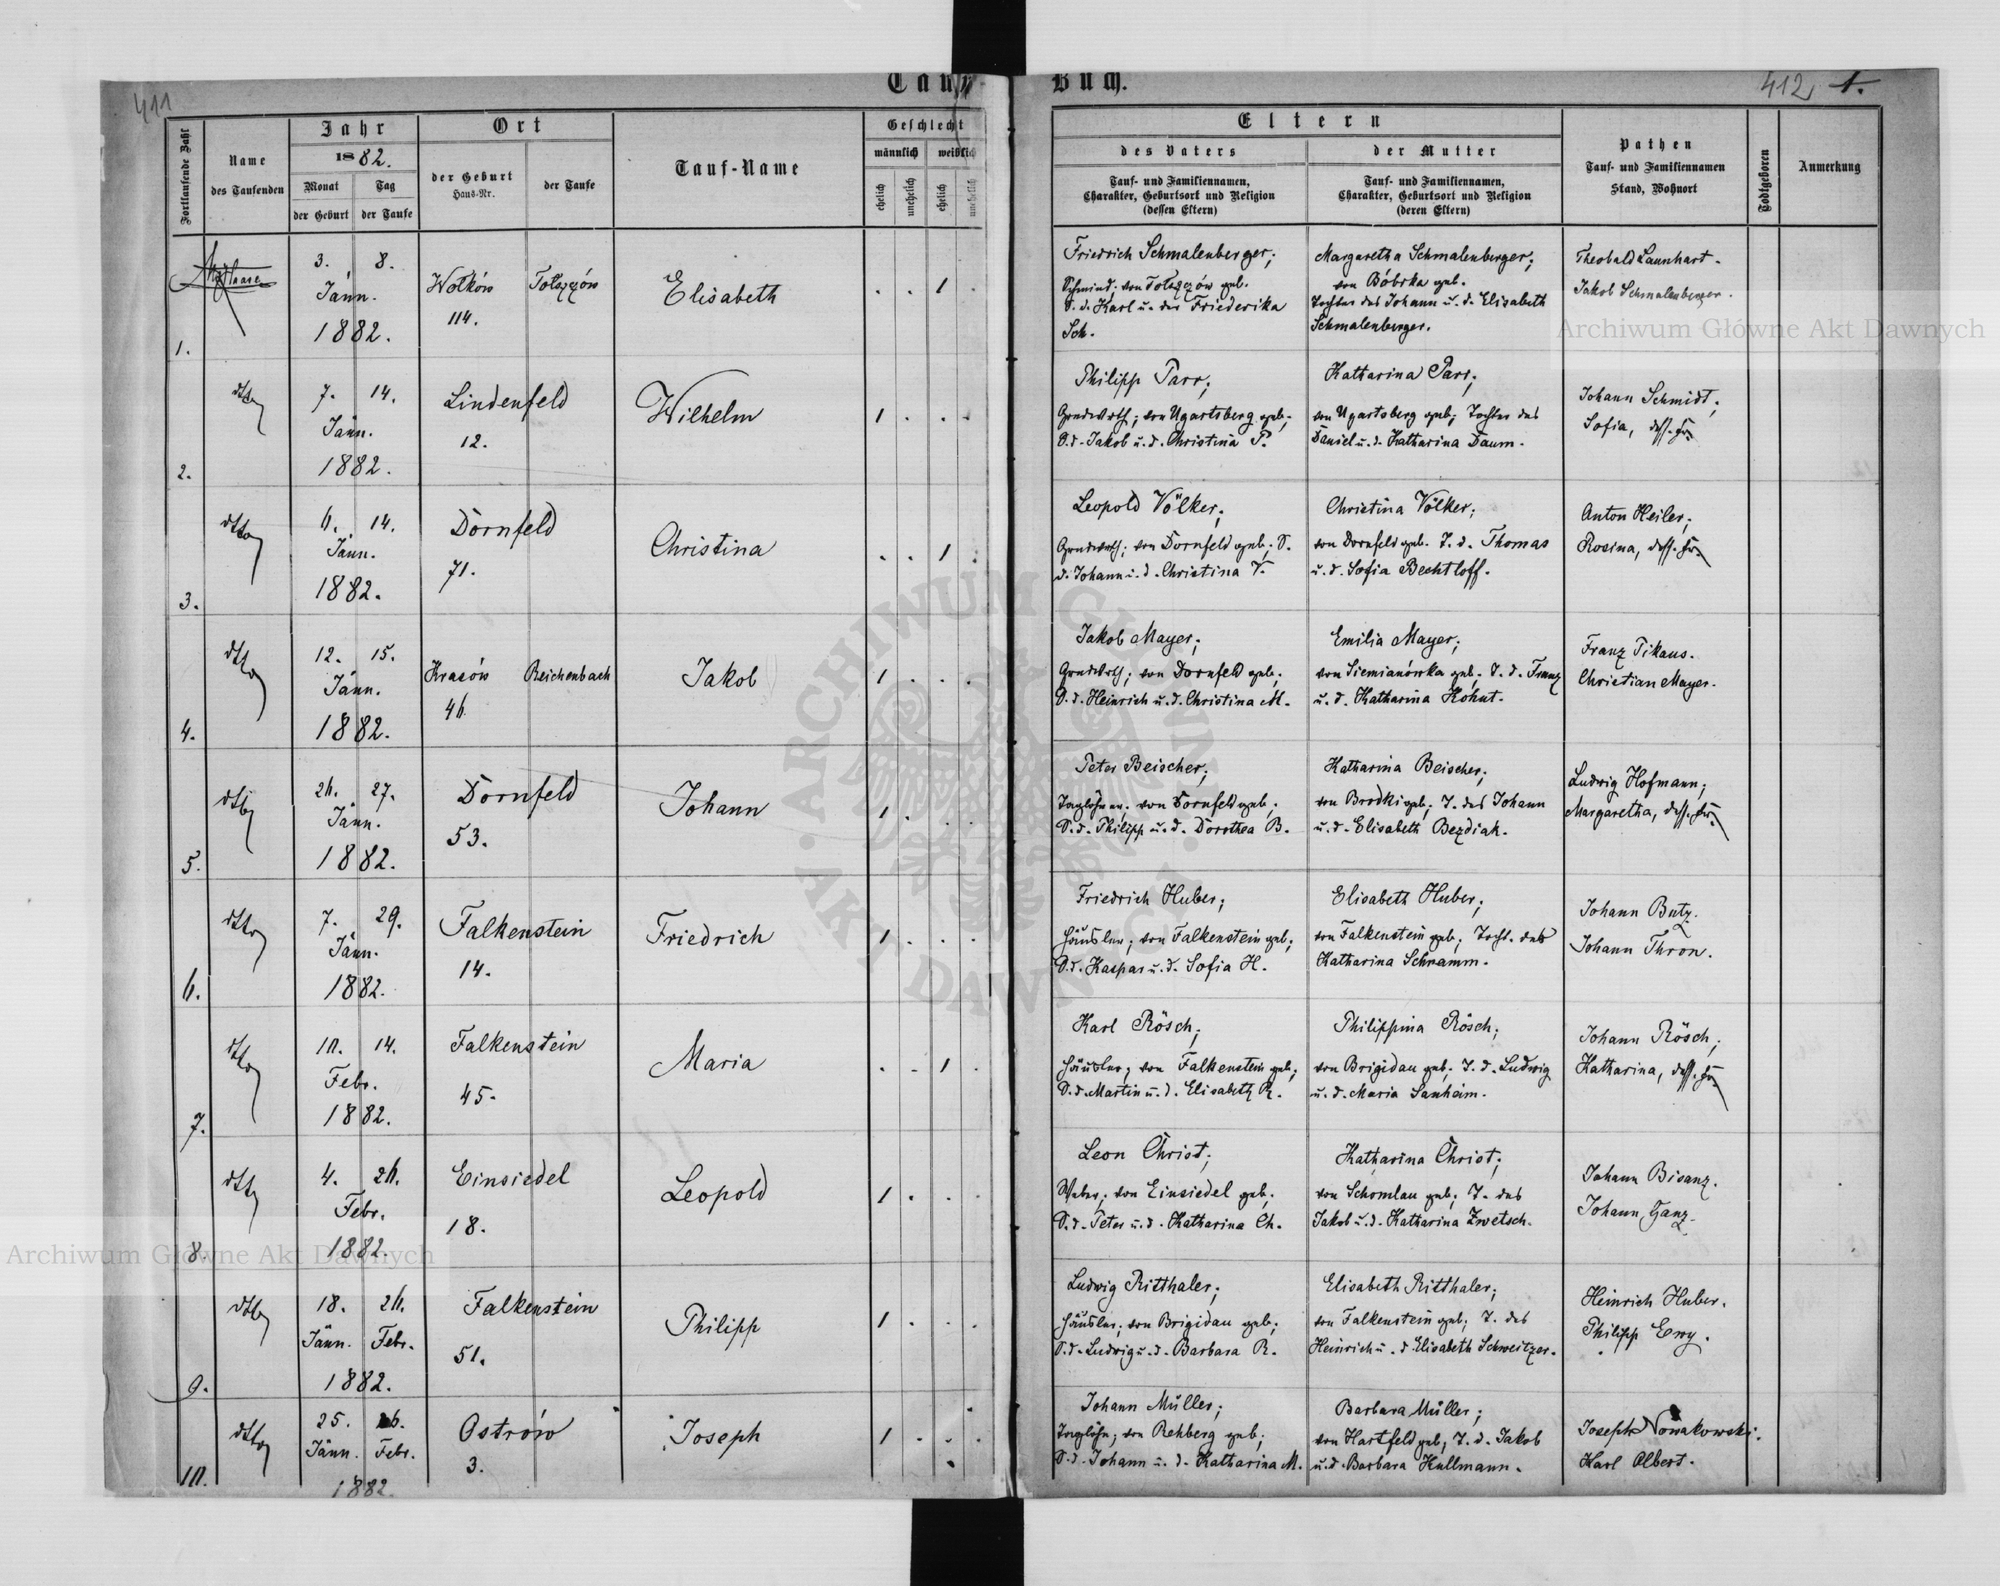 411
Tauf
Buch.
412 1.
Fortlaufende Zahl
Name
des Taufenden
Jahr
1882.
Monat
Tag
der Geburt
der Taufe
Ort
der Geburt
Haus-Nr.
der Taufe
Tauf-Name
Geschlecht
männlich
weiblich
ehelich
unehelich
ehelich
unehelich
Eltern
des Vaters
der Mutter
Tauf- und Familiennamen,
Charakter, Geburtsort und Religion
(dessen Eltern)
Tauf- und Familiennamen,
Charakter, Geburtsort und Religion
(deren Eltern)
Pathen
Tauf- und Familiennamen
Stand, Wohnort
Todtgeboren
Anmerkung
1.
3. 8.
Jänn.
1882.
Wolków
114.
Tolszczów
Elisabeth
. . 1 .
Friedrich Schmalenberger;
Schmied; von Tolszczów geb.
S. d. Karl u. der Friederika
Sch.
Margaretha Schmalenberger;
von Bóbrka geb.
Tochter des Johann u. d. Elisabeth
Schmalenberger.
Theobald Launhart.
Jakob Schmalenberger.
2.
dtto
7. 14.
Jänn.
1882.
Lindenfeld
12.
Wilhelm
1 . . .
Philipp Parr;
Grndwrth; von Ugartsberg geb.;
S. d. Jakob u. d. Christina P.
Katharina Parr;
von Ugartsberg geb; Tochter des
Daniel u. d. Katharina Daum.
Johann Schmidt;
Sofia, dess. Fr.
3.
dtto
6. 14.
Jänn.
1882.
Dornfeld
71.
Christina
. . 1 .
Leopold Völker;
Grndwrth; von Dornfeld geb; S.
d. Johann u. d. Christina V.
Christina Völker;
von Dornfeld geb. T. d. Thomas
u. d. Sofia Bechtloff.
Anton Heiler;
Rosina, dess. Fr.
4.
dtto
12. 15.
Jänn.
1882.
Krasów
46.
Reichenbach
Jakob
1 . . .
Jakob Mayer;
Grndwrth; von Dornfeld geb;
S. d. Heinrich u. d. Christina M.
Emilia Mayer;
von Siemianówka geb; T. d. Franz
u. d. Katharina Kohut.
Franz Tikaus.
Christian Mayer.
5.
dtto
26. 27.
Jänn.
1882.
Dornfeld
53.
Johann
1 . . .
Peter Beischer;
Taglöhner; von Dornfeld geb;
S. d. Philipp u. d. Dorothea B.
Katharina Beischer;
von Brodki geb; T. des Johann
u. d. Elisabeth Bezdiak.
Ludwig Hofmann;
Margaretha, dess. Fr.
6.
dtto
7. 29.
Jänn.
1882.
Falkenstein
14.
Friedrich
1 . . .
Friedrich Huber;
Häusler; von Falkenstein geb;
S. d. Kaspar u. d. Sofia H.
Elisabeth Huber;
von Falkenstein geb; Tocht. des
Katharina Schramm.
Johann Butz.
Johann Thron.
7.
dtto
10. 14.
Febr.
1882.
Falkenstein
45.
Maria
. . 1 .
Karl Rösch;
Häusler; von Falkenstein geb;
S. d. Martin u. d. Elisabeth R.
Philippina Rösch;
von Brigidau geb. T. d. Ludwig
u. d. Maria Sanheim.
Johann Rösch;
Katharina, dess. Fr.
8.
dtto
4. 26.
Febr.
1882.
Einsiedel
18.
Leopold
1 . . .
Leon Christ;
Weber; von Einsiedel geb;
S. d. Peter u. d. Katharina Ch.
Katharina Christ;
von Schomlau geb; T. des
Jakob u. d. Katharina Zwetsch.
Johann Bisanz.
Johann Ganz.
9.
dtto
18. 26.
Jänn. Febr.
1882.
Falkenstein
51.
Philipp
1 . . .
Ludwig Ritthaler;
Häusler; von Brigidau geb;
S. d. Ludwig u. d. Barbara R.
Elisabeth Ritthaler;
von Falkenstein geb; T. des
Heinrich u. d. Elisabeth Schweitzer.
Heinrich Huber.
Philipp Ewy.
10.
dtto
25. 26.
Jänn. Febr.
1882.
Ostrów
3.
Joseph
1 . . .
Johann Müller;
Taglöhn; von Rehberg geb;
S. d. Johann u. d. Katharina M.
Barbara Müller;
von Hartfeld geb; T. d. Jakob
u. d. Barbara Kullmann.
Joseph Nowakowski.
Karl Albert.
Archiwum Główne Akt Dawnych
Archiwum Główne Akt Dawnych